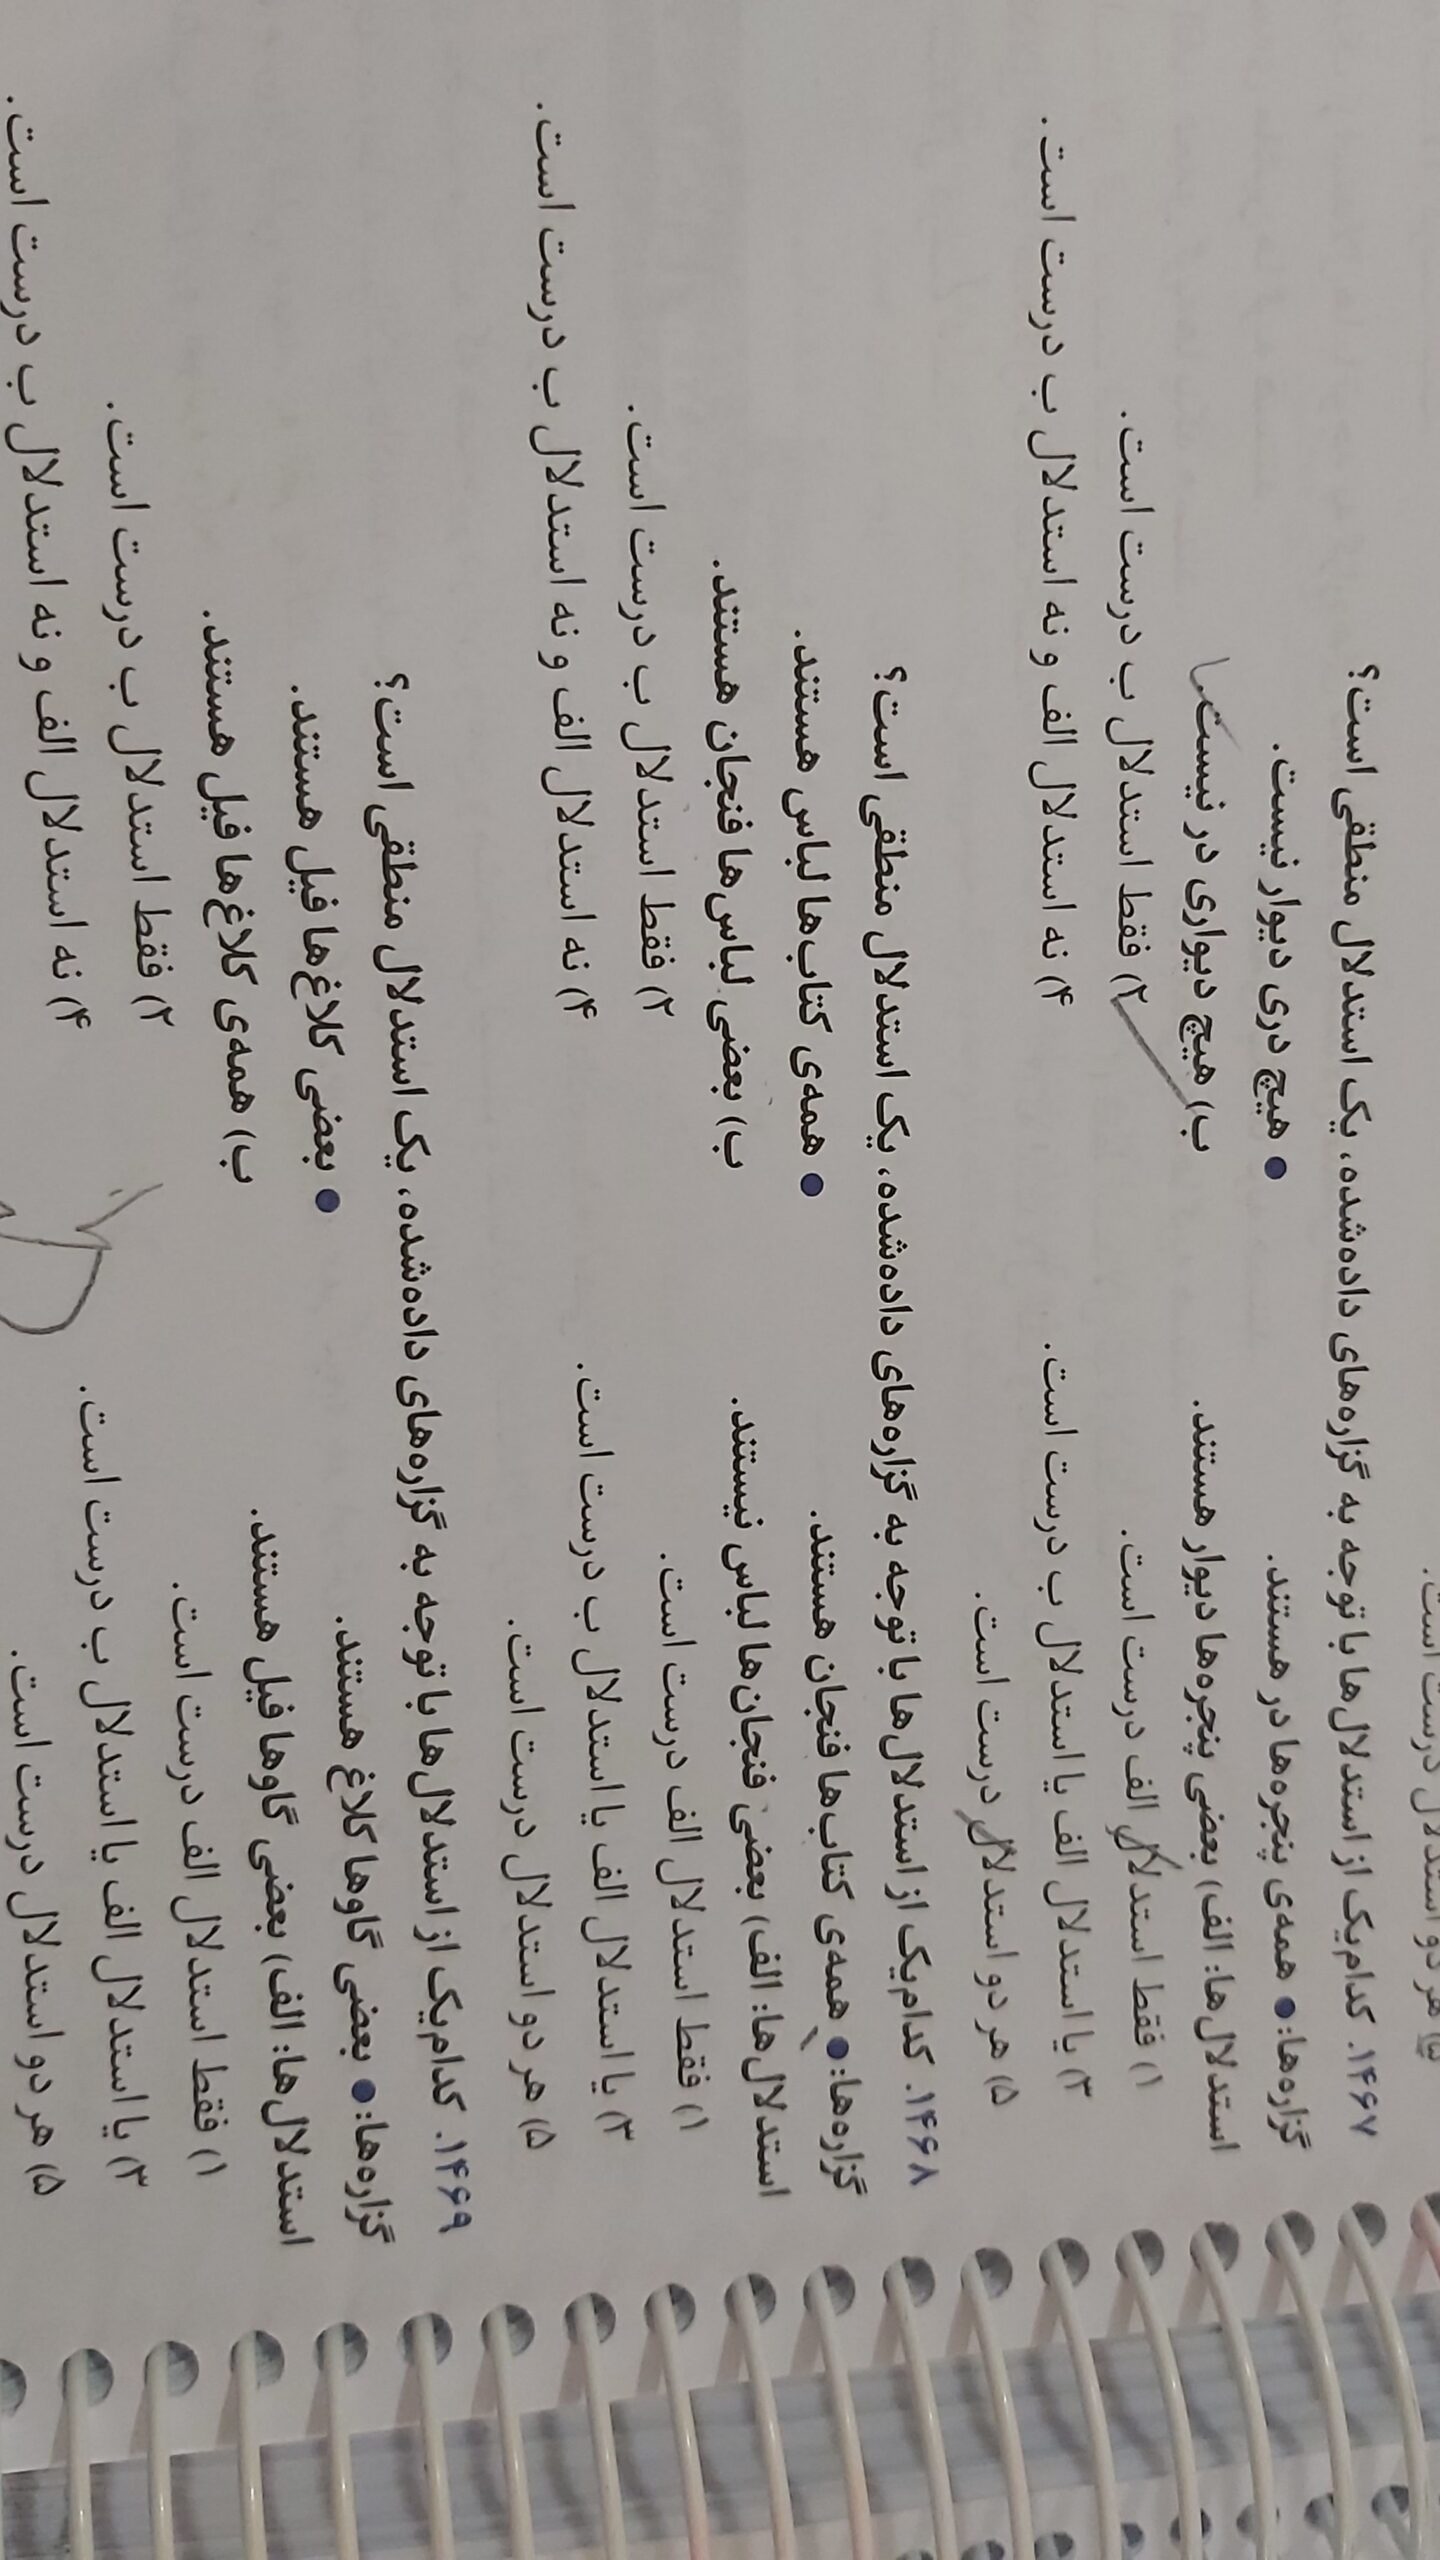 ۵) هر دو استدلال درست است.
۱۴۶۷. کدام‌یک از استدلال‌ها با توجه به گزاره‌های داده‌شده، یک استدلال منطقی است؟
گزاره‌ها: ● همه‌ی پنجره‌ها در هستند. ● هیچ دری دیوار نیست.
استدلال‌ها: الف) بعضی پنجره‌ها دیوار هستند. ب) هیچ دیواری در نیست.
۱) فقط استدلال الف درست است. ۲) فقط استدلال ب درست است.
۳) یا استدلال الف یا استدلال ب درست است. ۴) نه استدلال الف و نه استدلال ب درست است.
۵) هر دو استدلال درست است.
۱۴۶۸. کدام‌یک از استدلال‌ها با توجه به گزاره‌های داده‌شده، یک استدلال منطقی است؟
گزاره‌ها: ● همه‌ی کتاب‌ها فنجان هستند. ● همه‌ی کتاب‌ها لباس هستند.
استدلال‌ها: الف) بعضی فنجان‌ها لباس نیستند. ب) بعضی لباس‌ها فنجان هستند.
۱) فقط استدلال الف درست است. ۲) فقط استدلال ب درست است.
۳) یا استدلال الف یا استدلال ب درست است. ۴) نه استدلال الف و نه استدلال ب درست است.
۵) هر دو استدلال درست است.
۱۴۶۹. کدام‌یک از استدلال‌ها با توجه به گزاره‌های داده‌شده، یک استدلال منطقی است؟
گزاره‌ها: ● بعضی گاوها کلاغ هستند. ● بعضی کلاغ‌ها فیل هستند.
استدلال‌ها: الف) بعضی گاوها فیل هستند. ب) همه‌ی کلاغ‌ها فیل هستند.
۱) فقط استدلال الف درست است. ۲) فقط استدلال ب درست است.
۳) یا استدلال الف یا استدلال ب درست است. ۴) نه استدلال الف و نه استدلال ب درست است.
۵) هر دو استدلال درست است.